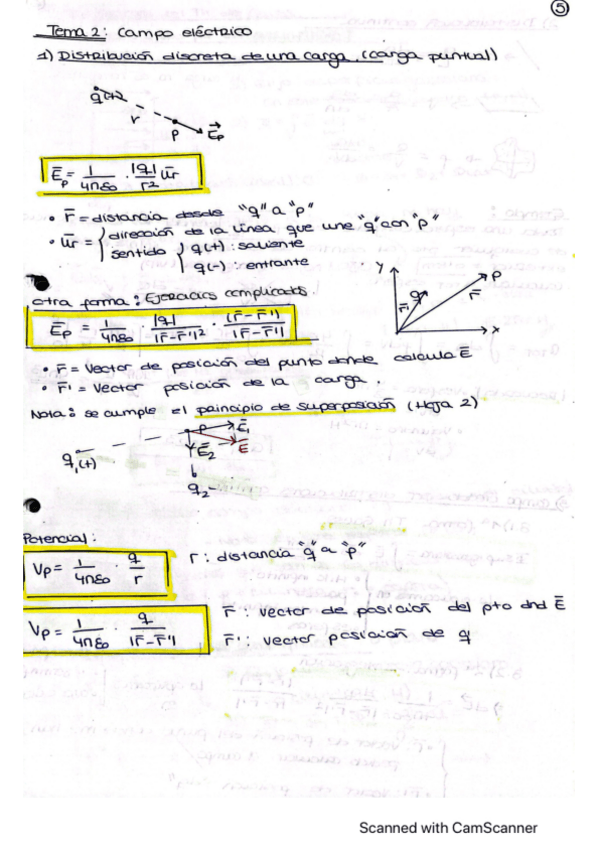 5
Tema 2: Campo eléctrico
1) Distribución discreta de una carga. (carga puntual)
q(+)
r
P
E⃗p
E̅p = 1/4πε0 · |q|/r² u̅r
• r̅ = distancia desde "q" a "p"
• u̅r = { dirección de la línea que une "q" con "p"
sentido { q(+) : saliente
q(-) entrante
Otra forma : Ejercicios complicados.
E̅p = 1/4πε0 · |q|/|r̅-r̅'|² · (r̅-r̅')/|r̅-r̅'|
Y
P
q
r̅'
r̅
x
• r̅ = Vector de posición del punto donde calcula E̅
• r̅' = Vector posición de la carga.
Nota: se cumple el principio de superposición (Hoja 2)
P
E̅1
E̅
E̅2
q1(+)
q2-
Potencial:
Vp = 1/4πε0 · q/r
r : distancia "q" a "p"
Vp = 1/4πε0 · q/|r̅-r̅'|
r̅ : vector de posición del pto dnd E̅
r̅' : vector posición de q
Scanned with CamScanner